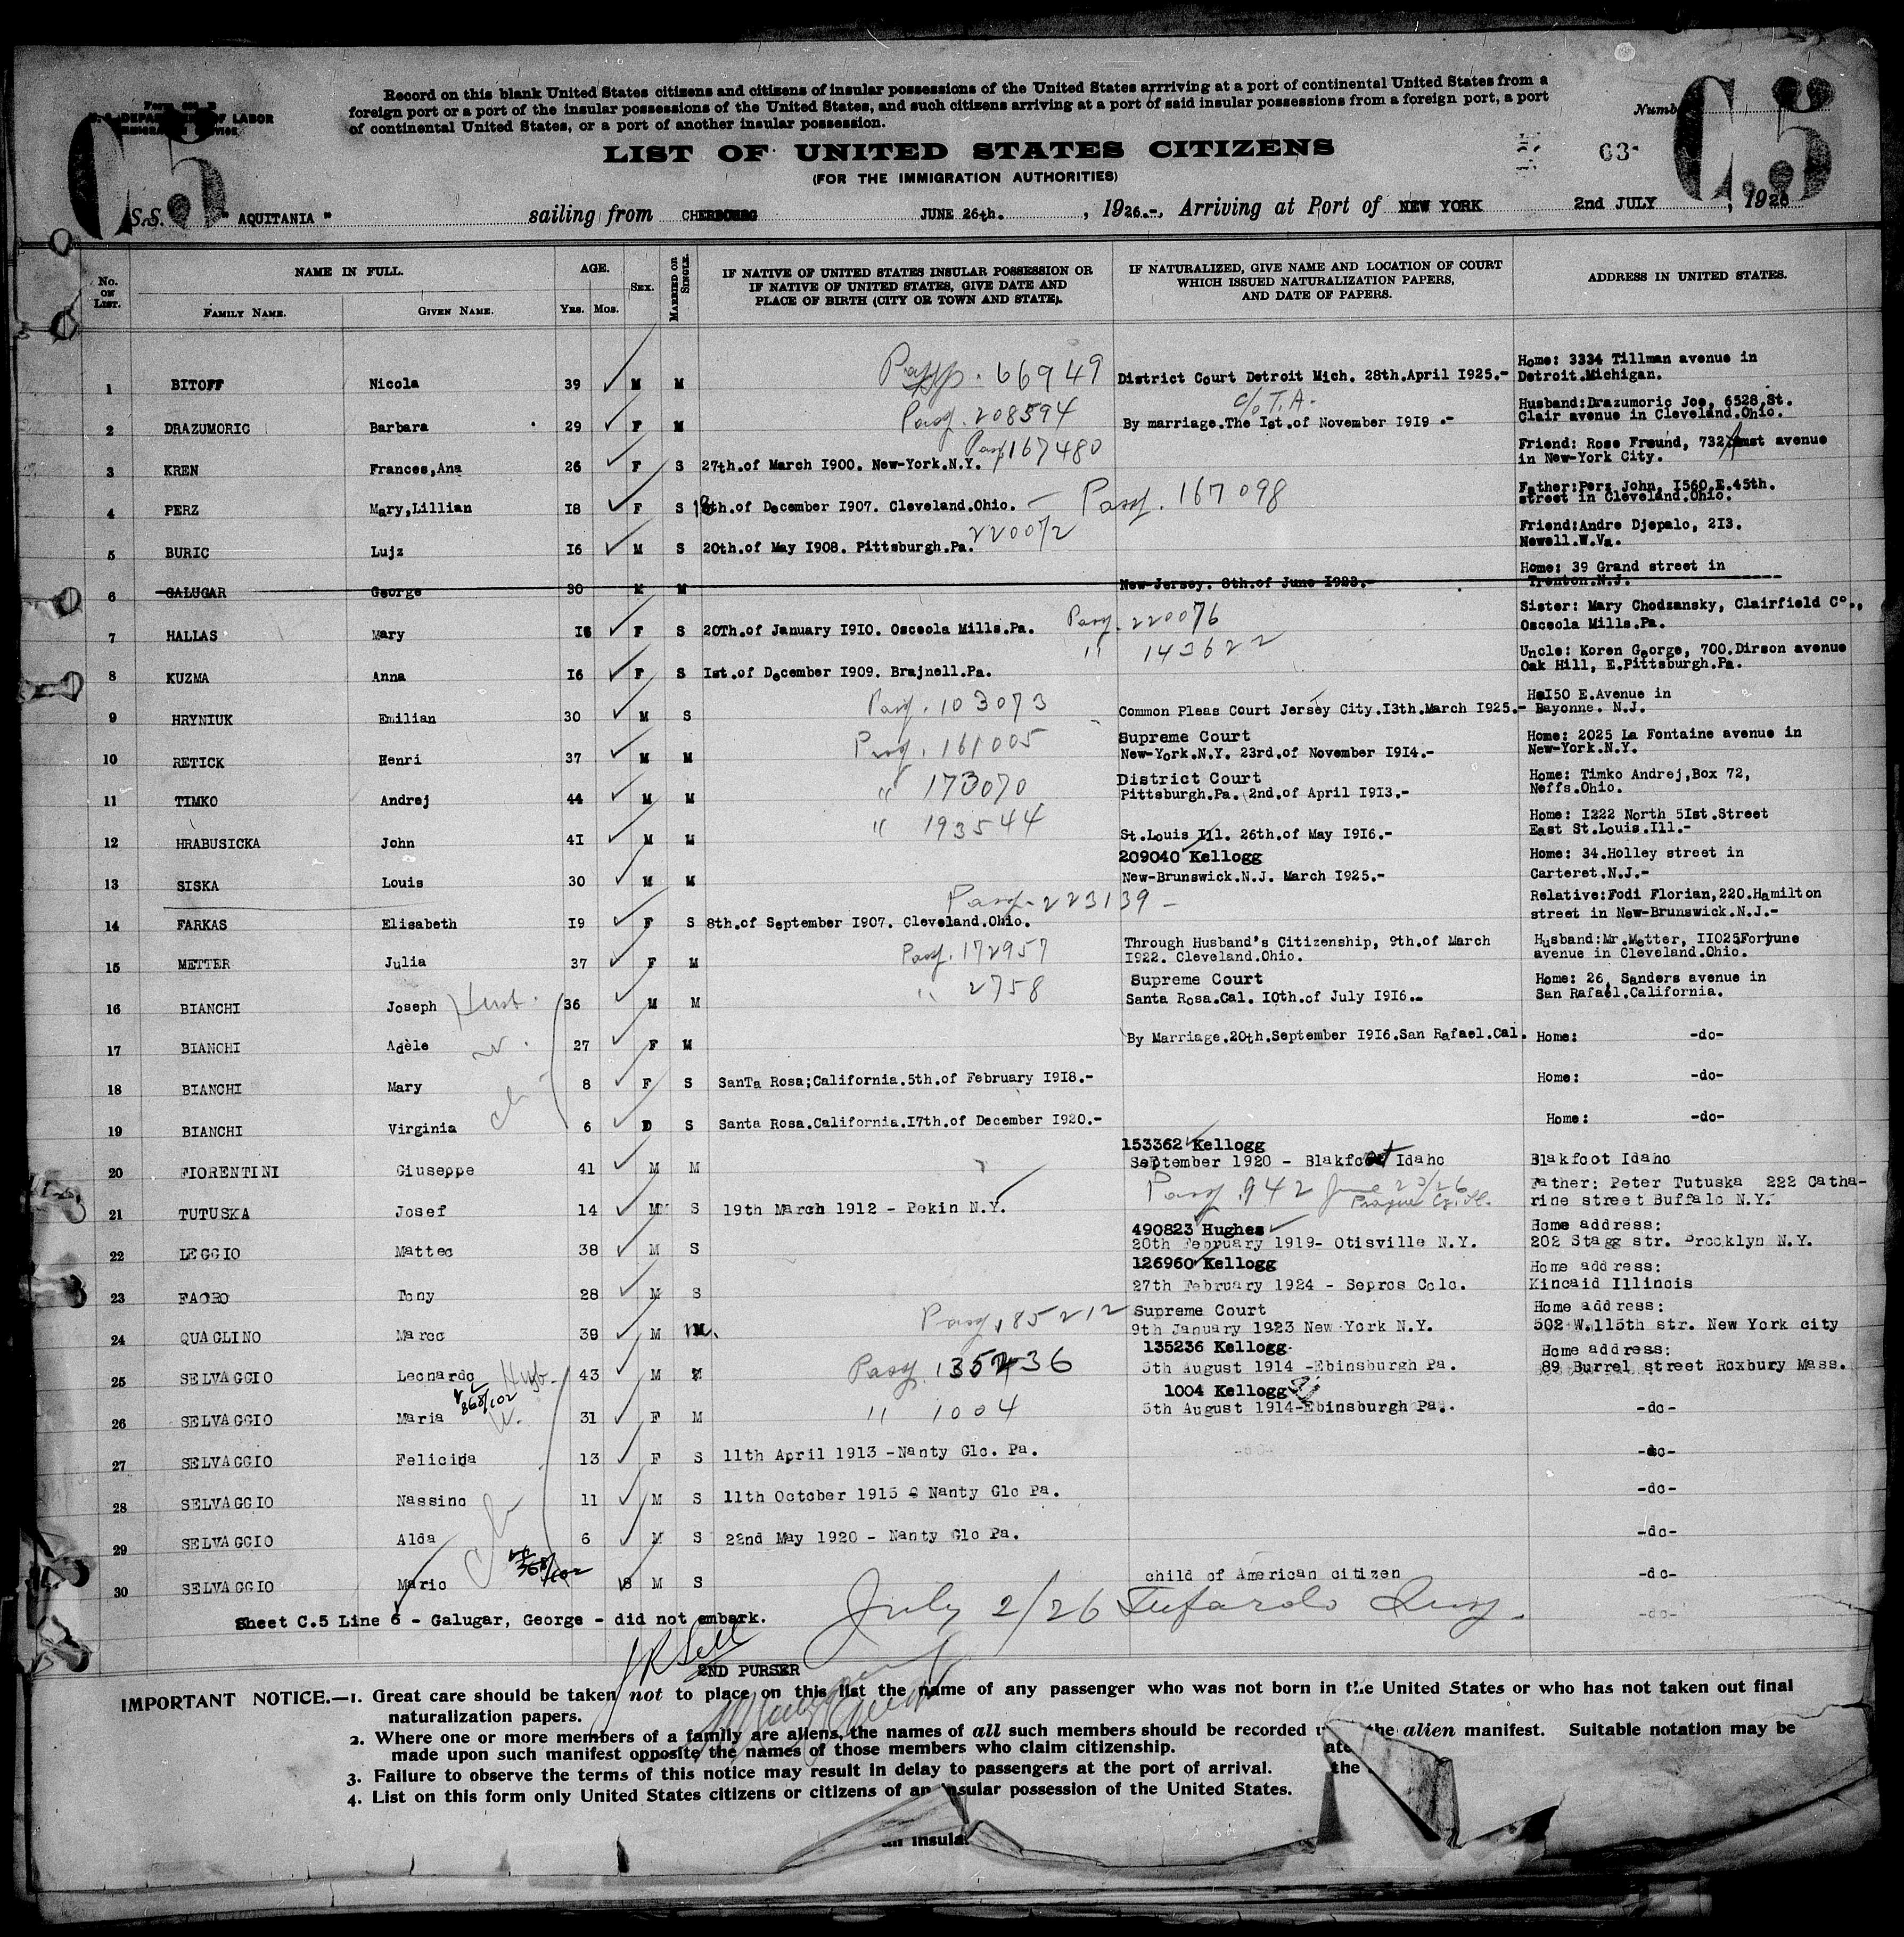 Record on this blank United States citizens and citizens of insular possessions of the United States arrriving at a port of continental United States from a
foreign port or a port of the insular possessions of the United States, and such citizens arriving at a port of said insular possessions from a foreign port, a port
of continental United States, or a port of another insular possession.
C 5
C 5
LIST OF UNITED STATES CITIZENS
(FOR THE IMMIGRATION AUTHORITIES)
63
S.S. " AQUITANIA " sailing from CHERBOURG JUNE 26th. , 1926.-, Arriving at Port of NEW YORK 2nd JULY , 1926
No. ON LIST.
NAME IN FULL.
FAMILY NAME. GIVEN NAME.
AGE.
YRS. MOS.
SEX.
MARRIED OR SINGLE.
IF NATIVE OF UNITED STATES INSULAR POSSESSION OR
IF NATIVE OF UNITED STATES, GIVE DATE AND
PLACE OF BIRTH (CITY OR TOWN AND STATE).
IF NATURALIZED, GIVE NAME AND LOCATION OF COURT
WHICH ISSUED NATURALIZATION PAPERS,
AND DATE OF PAPERS.
ADDRESS IN UNITED STATES.
1 BITOFF Nicola 39 M M Passp. 66949 District Court Detroit Mich. 28th.April I925.- Home: 3334 Tillman avenue in
Detroit.Michigan.
2 DRAZUMORIC Barbara 29 F M Pass. 208594 c/o T.A. By marriage.The Ist.of November I9I9 .- Husband:Drazumoric Joe, 6528,St.
Clair avenue in Cleveland.Ohio.
3 KREN Frances,Ana 26 F S 27th.of March I900. New-York.N.Y. Pass 167480 Friend: Rose Freund, 732 avenue
in New-York City.
4 PERZ Mary,Lillian I8 F S th.of December I907. Cleveland.Ohio. Pass. 167098 Father:Perz John, I560,E.45th.
street in Cleveland.Ohio.
5 BURIC Lujz I6 M S 20th.of May I908. Pittsburgh.Pa. 220072 Friend:Andre Djepalo, 2I3.
Newell.W.Va.
6 GALUGAR George 30 M M New-Jersey. 8th.of June I923.- Home: 39 Grand street in
Trenton.N.J.
7 HALLAS Mary I6 F S 20Th.of January I9I0. Osceola Mills.Pa. Pass. 220076 Sister: Mary Chodzansky, Clairfield Co.,
Osceola Mills.Pa.
8 KUZMA Anna I6 F S Ist.of December I909. Brajnell.Pa. " 143622 Uncle: Koren George, 700.Dirson avenue
Oak Hill, E.Pittsburgh.Pa.
9 HRYNIUK Emilian 30 M S Pass. 103073 Common Pleas Court Jersey City.I3th.March I925.- I50 E.Avenue in
Bayonne. N.J.
10 RETICK Henri 37 M M Pass. 161005 Supreme Court
New-York.N.Y. 23rd.of November I9I4.- Home: 2025 La Fontaine avenue in
New-York.N.Y.
11 TIMKO Andrej 44 M M " 173070 District Court
Pittsburgh.Pa. 2nd.of April I9I3.- Home: Timko Andrej,Box 72,
Neffs.Ohio.
12 HRABUSICKA John 4I M M " 193544 St.Louis Ill. 26th.of May I9I6.- Home: I222 North 5Ist.Street
East St.Louis.Ill.-
13 SISKA Louis 30 M M 209040 Kellogg
New-Brunswick.N.J. March I925.- Home: 34.Holley street in
Carteret.N.J.-
14 FARKAS Elisabeth I9 F S 8th.of September I907. Cleveland.Ohio. Pass. 223139 - Relative:Fodi Florian,220.Hamilton
street in New-Brunswick.N.J.-
15 METTER Julia 37 F M Pass. 172957 Through Husband's Citizenship, 9th.of March
I922. Cleveland.Ohio. Husband:Mr.Metter, II025Fortune
avenue in Cleveland.Ohio.
16 BIANCHI Joseph Husb. 36 M M " 2758 Supreme Court
Santa Rosa.Cal. I0th.of July I9I6.- Home: 26, Sanders avenue in
San Rafael.California.
17 BIANCHI Adèle w. 27 F M By Marriage.20th.September I9I6.San Rafael.Cal. Home: -do-
18 BIANCHI Mary 8 F S SanTa Rosa;California.5th.of February I9I8.- Home: -do-
19 BIANCHI Virginia ch 6 D S Santa Rosa.California.I7th.of December I920.- Home: -do-
20 FIORENTINI Giuseppe 41 M M 153362 Kellogg
September 1920 - Blakfoot Idaho Blakfoot Idaho
21 TUTUSKA Josef 14 M S 19th March 1912 - Pekin N.Y. Pass. 942 June 23/26
Prague Cz. Sl. Father: Peter Tutuska 222 Catha-
rine street Buffalo N.Y.
22 LEGGIO Matteo 38 M S 490823 Hughes
20th February 1919- Otisville N.Y. Home address:
202 Stagg str. Brooklyn N.Y.
23 FAORO Tony 28 M S 126960 Kellogg
27th February 1924 - Sepros Colo. Home address:
Kincaid Illinois
24 QUAGLINO Marco 39 M M Pass. 185212 Supreme Court
9th January 1923 New York N.Y. Home address:
502 W.115th str. New York city
25 SELVAGGIO Leonardo Husb. 43 M M Pass. 135236 135236 Kellogg
5th August 1914 -Ebinsburgh Pa. Home address:
89 Burrel street Roxbury Mass.
26 SELVAGGIO Maria W. 31 F M " 1004 1004 Kellogg
5th August 1914-Ebinsburgh Pa. -do-
27 SELVAGGIO Felicina 13 F S 11th April 1913 -Nanty Glo. Pa. -do-
28 SELVAGGIO Nassino 11 M S 11th October 1915 - Nanty Glo Pa. -do-
29 SELVAGGIO Alda 6 M S 22nd May 1920 - Nanty Glo Pa. -do-
30 SELVAGGIO Mario 8 M S child of American citizen -do-
Sheet C.5 Line 6 - Galugar, George - did not embark. July 2/26 Tufardo Insp. -do-
2ND PURSER
IMPORTANT NOTICE.—1. Great care should be taken not to place on this list the name of any passenger who was not born in the United States or who has not taken out final
naturalization papers.
2. Where one or more members of a family are aliens, the names of all such members should be recorded the alien manifest. Suitable notation may be
made upon such manifest opposite the names of those members who claim citizenship.
3. Failure to observe the terms of this notice may result in delay to passengers at the port of arrival. the
4. List on this form only United States citizens or citizens of an insular possession of the United States.